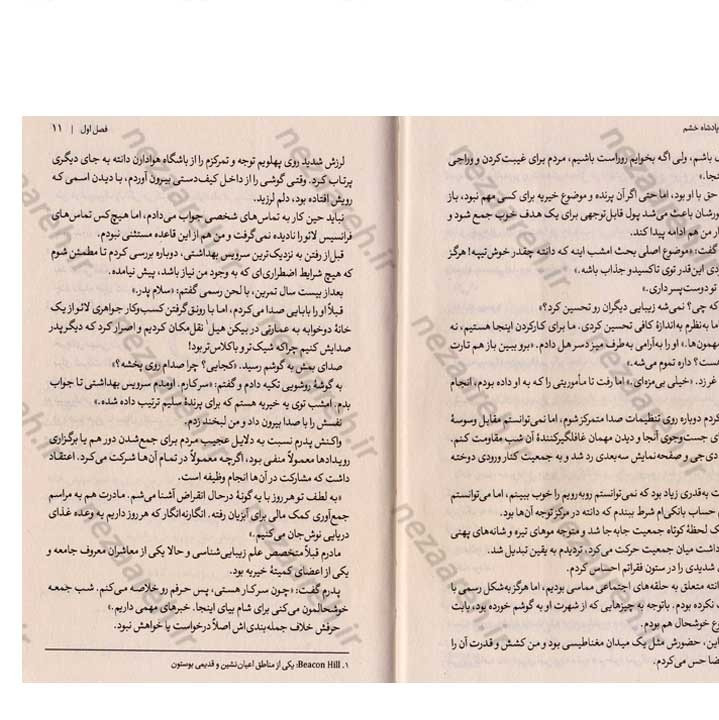 پادشاه خشم
باشم، ولی اگه بخوایم روراست باشیم، مردم برای غیبت‌کردن و وراجی
حق با او بود، اما حتی اگر آن پرنده و موضوع خیریه برای کسی مهم نبود، باز
باعث می‌شد پول قابل‌توجهی برای یک هدف خوب جمع شود و
من هم ادامه پیدا کند.
گفت: «موضوع اصلی بحث امشب اینه که دانته چقدر خوش‌تیپه! هرگز
این‌قدر توی تاکسیدو جذاب باشه.»
تو دوست‌پسر داری.»
که چی؟ نمی‌شه زیبایی دیگران رو تحسین کرد؟»
به‌نظرم به‌اندازهٔ کافی تحسین کردی. ما برای کارکردن اینجا هستیم، نه
او را به‌آرامی به‌طرف میز دسر هل دادم. «برو ببین باز هم تارت
داره تموم می‌شه.»
غرزد. «خیلی بی‌مزه‌ای.» اما رفت تا مأموریتی را که به او داده بودم، انجام
کردم دوباره روی تنظیمات صدا متمرکز شوم، اما نمی‌توانستم مقابل وسوسهٔ
جست‌وجوی آنجا و دیدن مهمان غافلگیرکنندهٔ آن شب مقاومت کنم.
دی‌جی و صفحه‌نمایش سه‌بعدی رد شد و به جمعیت کنار ورودی دوخته
به‌قدری زیاد بود که نمی‌توانستم روبه‌رویم را خوب ببینم، اما می‌توانستم
حساب بانکی‌ام شرط ببندم که دانته در مرکز توجه آن‌ها بود.
لحظهٔ کوتاه جمعیت جابه‌جا شد و متوجه موهای تیره و شانه‌های پهنی
داشت میان جمعیت حرکت می‌کرد، تردیدم به یقین تبدیل شد.
شدیدی را در ستون فقراتم احساس کردم.
دانته متعلق به حلقه‌های اجتماعی مماسی بودیم، اما هرگز به‌شکل رسمی با
نکرده بودم. باتوجه به چیزهایی که از شهرت او به گوشم خورده بود، بابت
خوشحال هم بودم.
این، حضورش مثل یک میدان مغناطیسی بود و من کشش و قدرت آن را
حس می‌کردم.
فصل اول | ۱۱
لرزش شدید روی پهلویم توجه و تمرکزم را از باشگاه هوادارن دانته به جای دیگری
پرتاب کرد. وقتی گوشی را از داخل کیف‌دستی بیرون آوردم، با دیدن اسمی که
رویش افتاده بود، دلم لرزید.
نباید حین کار به تماس‌های شخصی جواب می‌دادم، اما هیچ‌کس تماس‌های
فرانسیس لائو را نادیده نمی‌گرفت و من هم از این قاعده مستثنی نبودم.
قبل از رفتن به نزدیک‌ترین سرویس بهداشتی، دوباره بررسی کردم تا مطمئن شوم
که هیچ شرایط اضطراری‌ای که به وجود من نیاز باشد، پیش نیامده.
بعد از بیست سال تمرین، با لحن رسمی گفتم: «سلام پدر.»
قبلاً او را بابایی صدا می‌کردم، اما با رونق‌گرفتن کسب‌وکار جواهری لائو از یک
خانهٔ دوخوابه به عمارتی در بیکن هیل۱ نقل‌مکان کردیم و اصرار کرد که دیگر پدر
صدایش کنیم چراکه شیک‌تر و باکلاس‌تر بود!
صدای بمش به گوشم رسید. «کجایی؟ چرا صدام روی پخشه؟»
به گوشهٔ روشویی تکیه دادم و گفتم: «سرکارم. اومدم سرویس بهداشتی تا جواب
بدم. امشب توی یه خیریه هستم که برای پرندهٔ سلیم ترتیب داده شده.»
نفسش را با صدا بیرون داد و من لبخند زدم.
واکنش پدرم نسبت به دلایل عجیب مردم برای جمع‌شدن دور هم یا برگزاری
رویدادها معمولاً منفی بود، اگرچه معمولاً در تمام آن‌ها شرکت می‌کرد. اعتقاد
داشت که مشارکت در آن‌ها انجام وظیفه است.
«به لطف تو هر روز با یه گونهٔ درحال انقراض آشنا می‌شم. مادرت هم به مراسم
جمع‌آوری کمک مالی برای آبزیان رفته. انگارنه‌انگار که هر روز داریم یه وعده غذای
دریایی نوش‌جان می‌کنیم.»
مادرم قبلاً متخصص علم زیبایی‌شناسی و حالا یکی از معاشران معروف جامعه و
یکی از اعضای کمیتهٔ خیریه بود.
پدرم گفت: «چون سرکار هستی، پس حرفم رو خلاصه می‌کنم. شب جمعه
خوشحالمون می‌کنی برای شام بیای اینجا. خبرهای مهمی داریم.»
حرفش خلاف جمله‌بندی‌اش اصلاً درخواست یا خواهش نبود.
۱. Beacon Hill: یکی از مناطق اعیان‌نشین و قدیمی بوستون
nezaareh.ir
nezaareh.ir
nezaareh.ir
nezaareh.ir